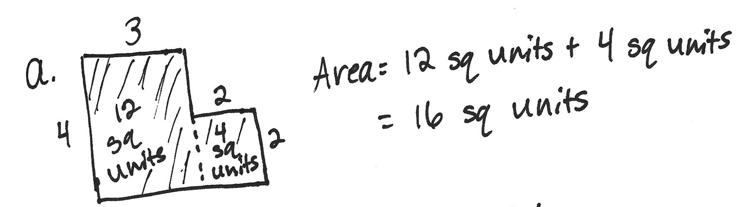 a.
3
4
12
sq
units
2
4
sq
units
2
Area= 12 sq units + 4 sq units
= 16 sq units